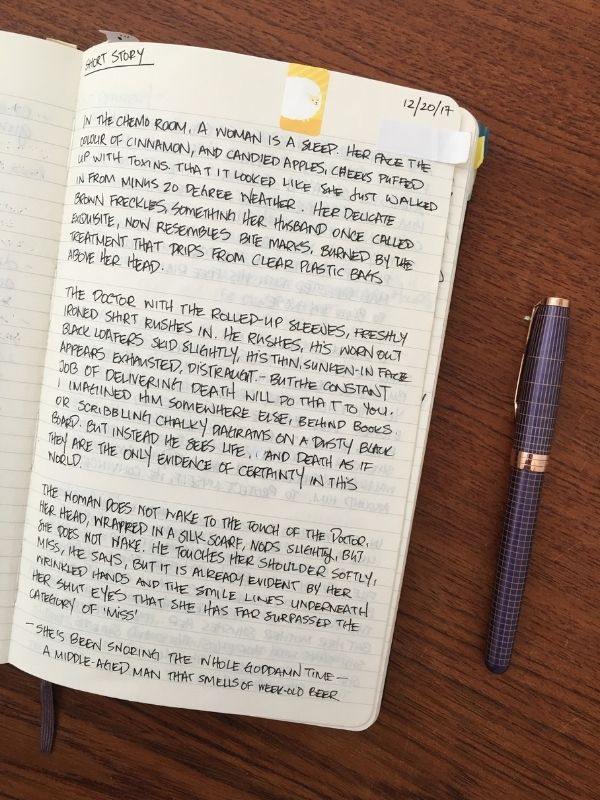 SHORT STORY
12/20/17
IN THE CHEMO ROOM, A WOMAN IS A SLEEP. HER FACE THE
COLOUR OF CINNAMON, AND CANDIED APPLES, CHEEKS PUFFED
UP WITH TOXINS. THAT IT LOOKED LIKE SHE JUST WALKED
IN FROM MINUS 20 DEGREE WEATHER. HER DELICATE
BROWN FRECKLES, SOMETHING HER HUSBAND ONCE CALLED
EXQUISITE, NOW RESEMBLES BITE MARKS, BURNED BY THE
TREATMENT THAT DRIPS FROM CLEAR PLASTIC BAGS
ABOVE HER HEAD.
THE DOCTOR WITH THE ROLLED-UP SLEEVES, FRESHLY
IRONED SHIRT RUSHES IN. HE RUSHES, HIS WORN OUT
BLACK LOAFERS SKID SLIGHTLY, HIS THIN, SUNKEN-IN FACE
APPEARS EXHAUSTED, DISTRAUGHT.- BUT THE CONSTANT
JOB OF DELIVERING DEATH WILL DO THAT TO YOU.
I IMAGINED HIM SOMEWHERE ELSE, BEHIND BOOKS
OR SCRIBBLING CHALKY DIAGRAMS ON A DUSTY BLACK
BOARD. BUT INSTEAD HE SEES LIFE, AND DEATH AS IF
THEY ARE THE ONLY EVIDENCE OF CERTAINTY IN THIS
WORLD.
THE WOMAN DOES NOT WAKE TO THE TOUCH OF THE DOCTOR.
HER HEAD, WRAPPED IN A SILK SCARF, NODS SLIGHTLY, BUT
SHE DOES NOT WAKE. HE TOUCHES HER SHOULDER SOFTLY,
MISS, HE SAYS, BUT IT IS ALREADY EVIDENT BY HER
WRINKLED HANDS AND THE SMILE LINES UNDERNEATH
HER SHUT EYES THAT SHE HAS FAR SURPASSED THE
CATEGORY OF 'MISS'
-SHE'S BEEN SNORING THE WHOLE GODDAMN TIME-
A MIDDLE-AGED MAN THAT SMELLS OF WEEK-OLD BEER